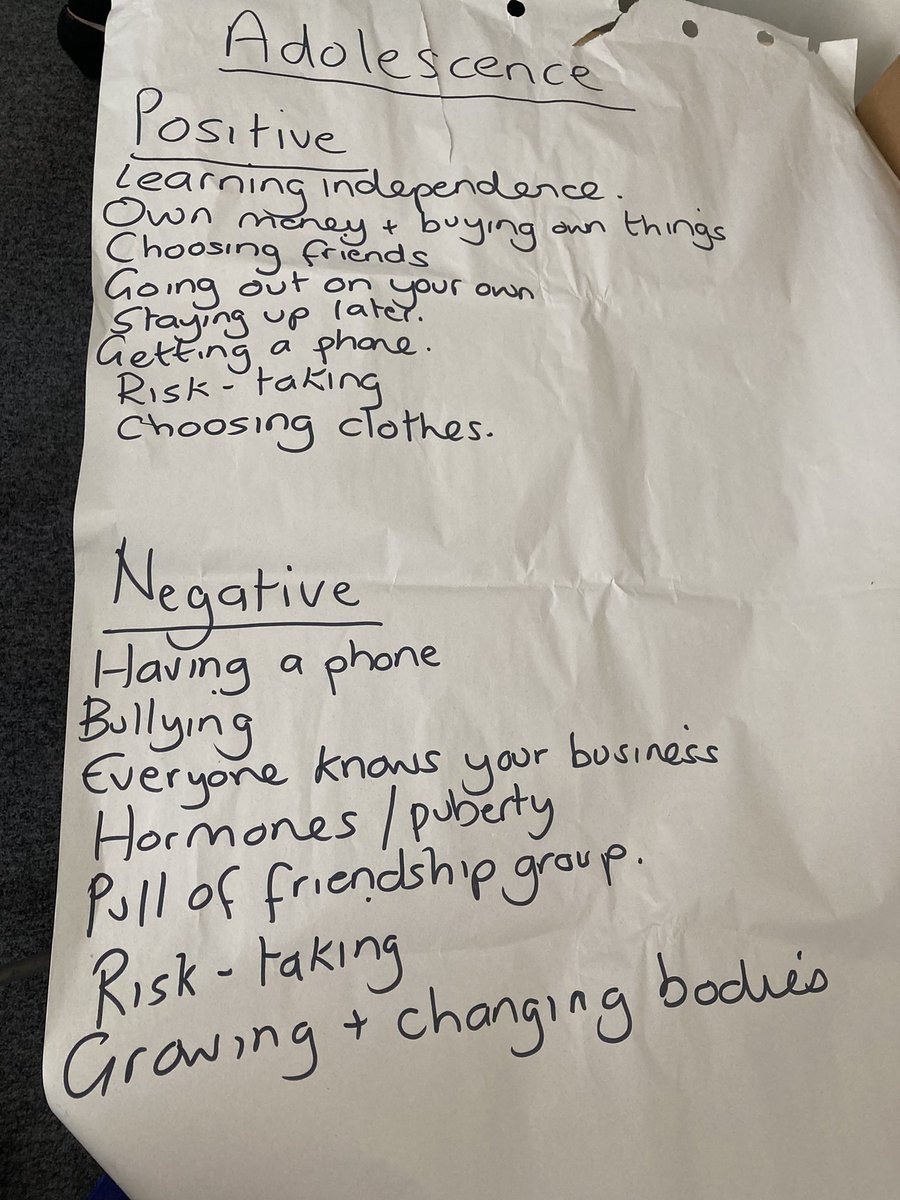 Adolescence
Positive
Learning independence.
Own money + buying own things
Choosing friends
Going out on your own
Staying up later.
Getting a phone.
Risk - taking
Choosing clothes.
Negative
Having a phone
Bullying
Everyone knows your business
Hormones / puberty
Pull of friendship group.
Risk - taking
Growing + changing bodies